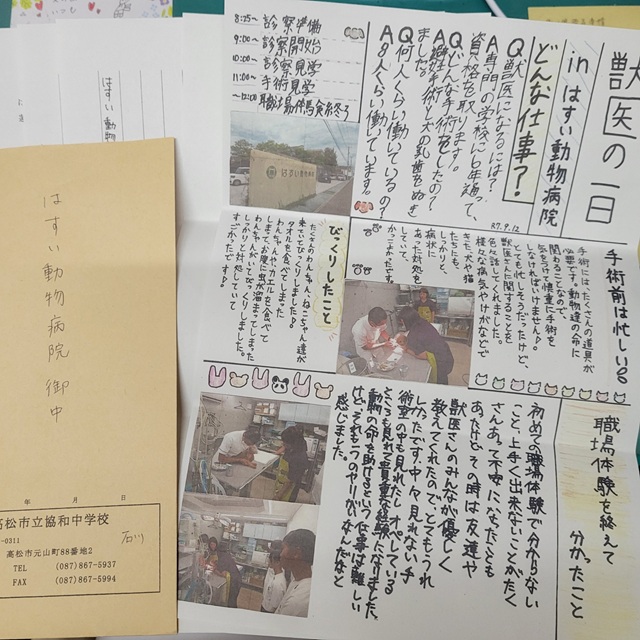 獣医の一日
inはすい動物病院
どんな仕事？
R7.9.12
Q獣医になるには？
A専門の学校に6年通って、
資格を取ります。
Qどんな手術をしたの？
A避妊手術と犬の乳歯をぬき
ました。
Q何人くらい働いているの？
A8人くらい働いています。
8:25〜診察準備
9:00〜診察開始
10:00〜診察見学
11:00〜手術見学
〜12:00職場体験終了
手術前は忙しい
手術には、たくさんの道具が
必要です。動物達の命に
関わることなので、
気を付けて慎重に手術を
しなければいけません。
とても忙しそうだったけど、
獣医さんに関することを
色々話してくれました。
様々な病気やけがなどで
きた犬や猫
たちにも、
しっかりと、
病状に
あった対処を
していて、
かっこよかったです。
びっくりしたこと
たくさんわんちゃん、ねこちゃん達が
来ていてびっくりしました。
タオルを食べてしまった
わんちゃんや、カエルを食べて
しまって、お腹に虫が溜まってしまった
わんちゃんがいてびっくりしました。
しっかりと対処していて
すごかったです。
職場体験を終えて
分かったこと
初めての職場体験で分からない
こと、上手く出来ないことがたく
さんあって不安になったことも
あったけど、その時は友達や
獣医さんのみんなが優しく
教えてくれたので、とてもうれ
しかったです。中々見れない手
術室の中も見れたし、オペしている
ところも見れて貴重な経験になりました。
動物の命を助けるという仕事は難しい
けど、それも一つのやりがいなんだなと
感じました。
はすい動物病院 御中
年 月 日
高松市立協和中学校
石川
-0311
高松市元山町88番地2
TEL (087)867-5937
FAX (087)867-5994
はすい動物